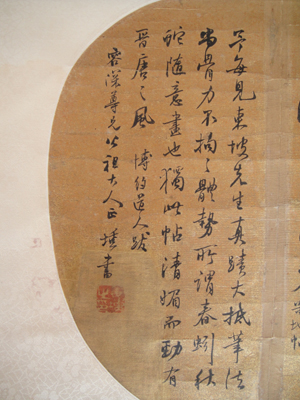 予每見東坡先生真蹟大抵筆法
尚骨力不拘〻體勢所謂春蚓秋
蛇隨意畫也獨此帖清媚而勁有
晉唐之風 道人跋
深尊兄公祖大人正 書